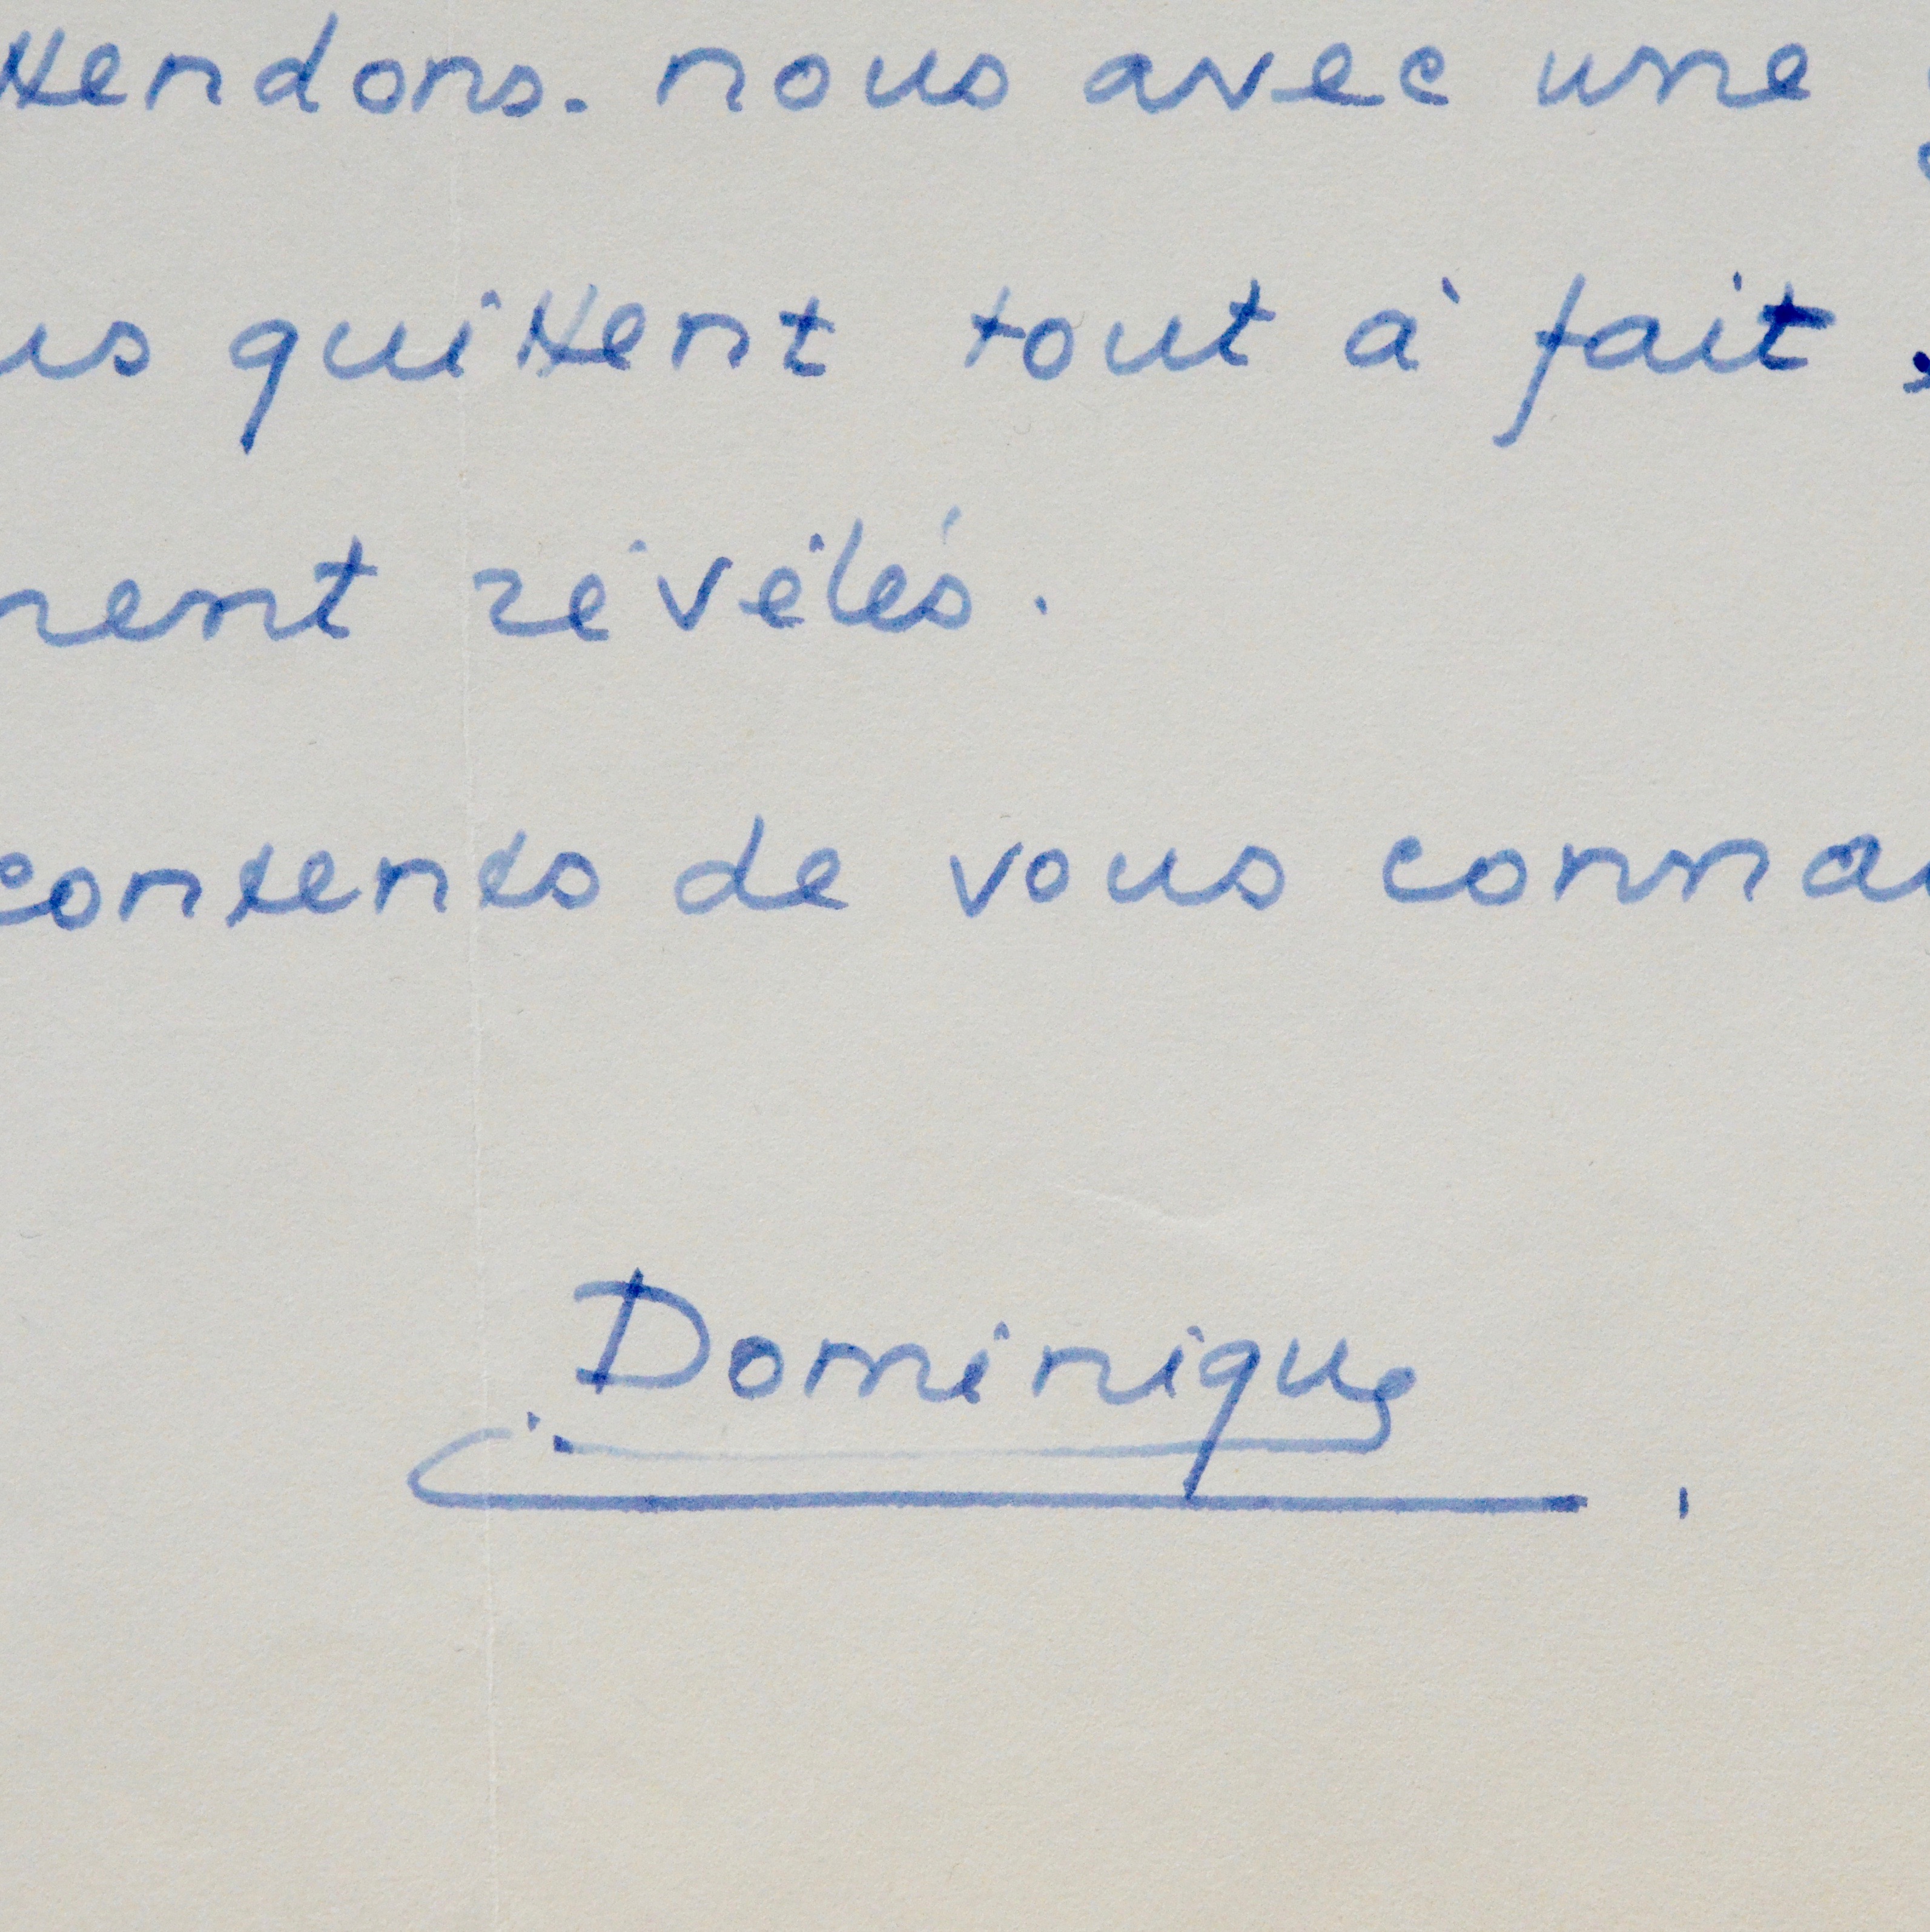 ttendons. nous avec une
us quittent tout à fait,
nent révélés.
contents de vous connai
Dominique